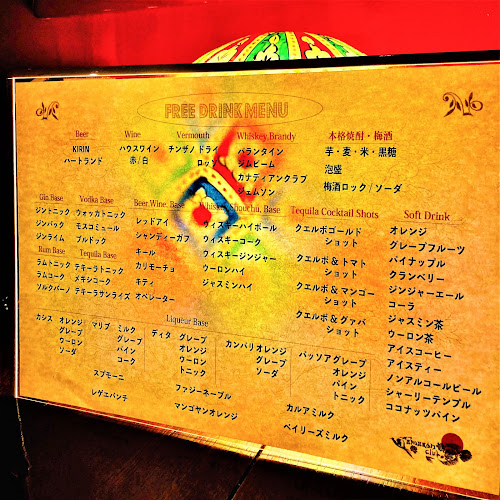 FREE DRINK MENU
Beer
KIRIN
ハートランド
Wine
ハウスワイン
赤/白
Vermouth
チンザノ ドライ
ロッソ
Whiskey,Brandy
バランタイン
ジムビーム
カナディアンクラブ
ジェムソン
本格焼酎・梅酒
芋・麦・米・黒糖
泡盛
梅酒ロック/ソーダ
Gin Base
ジントニック
ジンバック
ジンライム
Vodka Base
ウォッカトニック
モスコミュール
ブルドック
Rum Base
ラムトニック
ラムコーク
ソルクバーノ
Tequila Base
テキーラトニック
メキシコーク
テキーラサンライズ
Beer,Wine, Base
レッドアイ
シャンディーガフ
キール
カリモーチョ
キティ
オペレーター
Whiskey,Shouchu, Base
ウィスキーハイボール
ウィスキーコーク
ウィスキージンジャー
ウーロンハイ
ジャスミンハイ
Tequila Cocktail Shots
クエルボゴールド
ショット
クエルボ & トマト
ショット
クエルボ & マンゴー
ショット
クエルボ & グァバ
ショット
Soft Drink
オレンジ
グレープフルーツ
パイナップル
クランベリー
ジンジャーエール
コーラ
ジャスミン茶
ウーロン茶
アイスコーヒー
アイスティー
ノンアルコールビール
シャーリーテンプル
ココナッツパイン
Liqueur Base
カシス オレンジ
グレープ
ウーロン
ソーダ
マリブ ミルク
グレープ
パイン
コーク
ディタ グレープ
オレンジ
ウーロン
トニック
カンパリ オレンジ
グレープ
ソーダ
パッソア グレープ
オレンジ
パイン
トニック
スプモーニ
レゲエパンチ
ファジーネーブル
マンゴヤンオレンジ
カルアミルク
ベイリーズミルク